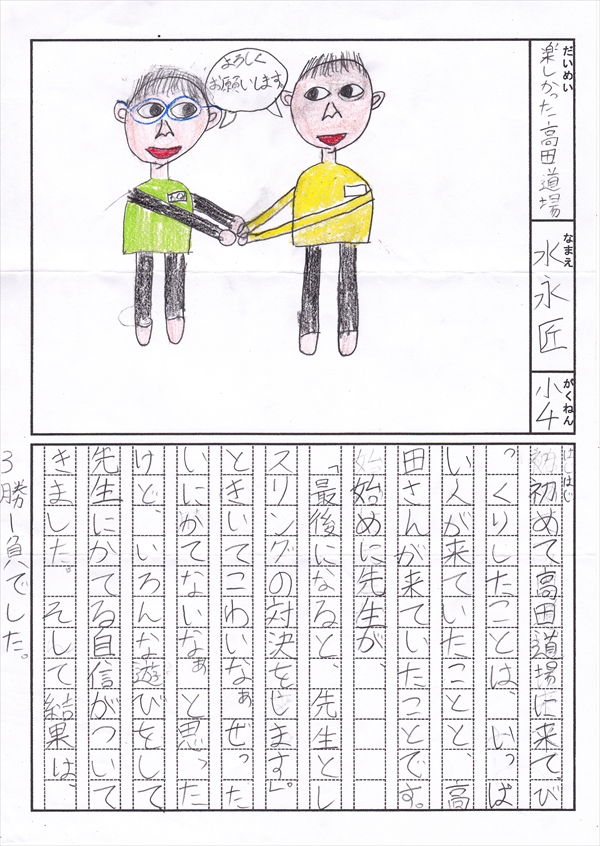 だいめい
楽しかった高田道場
なまえ
水永匠
がくねん
小4
よろしく
お願いします
はじ
初めて高田道場に来てび
っくりしたことは、いっぱ
い人が来ていたことと、高
田さんが来ていたことです。
始めに先生が、
「最後になると、先生とレ
スリングの対決をします」。
ときいてこわいなぁぜった
いにかてないなぁと思った
けど、いろんな遊びをして
先生にかてる自信がついて
きました。そして結果は、
3勝1負でした。